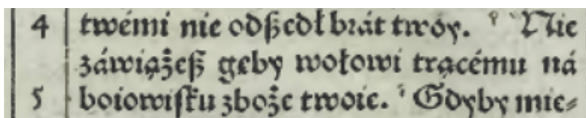 4 twémi nie odßedł brát twóy. Nie
záwiążeß gęby wołowi trącému ná
5 boiowiſku zboże twoie. Gdyby mie⸗